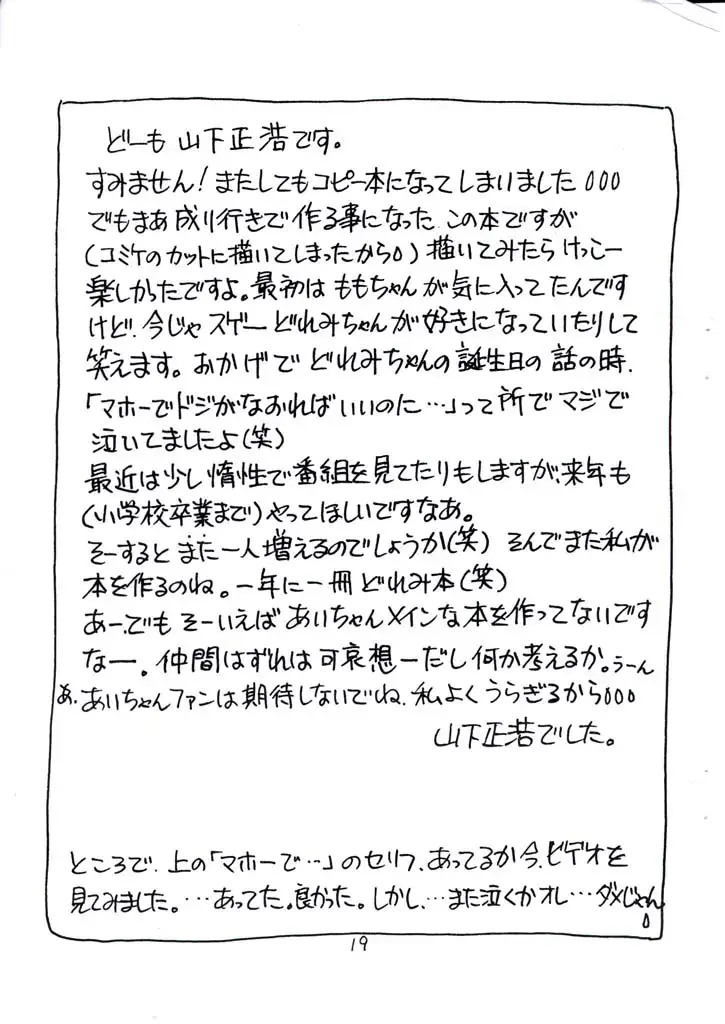 どーも 山下正浩です。
すみません！またしてもコピー本になってしまいました
でもまあ成り行きで作る事になった この本ですが
(コミケのカットに描いてしまったから) 描いてみたら けっこー
楽しかったですよ。最初は ももちゃんが気に入ってたんです
けど、今じゃ スゲー どれみちゃんが好きになっていたりして
笑えます。おかげで どれみちゃんの誕生日の話の時、
「マホーでドジがなおればいいのに…」って所で マジで
泣いてましたよ(笑)
最近は少し惰性で番組を見てたりもしますが、来年も
(小学校卒業まで)やってほしいですなあ。
そーすると また一人増えるのでしょうか(笑) そんでまた私が
本を作るのね。一年に一冊どれみ本(笑)
あー、でも そーいえば あいちゃんメインな本を作ってないです
なー。仲間はずれは可哀想ーだし何か考えるか。うーん
あ、あいちゃんファンは期待しないでね、私よくうらぎるから
山下正浩でした。
ところで、上の「マホーで…」のセリフ、あってるか今、ビデオを
見てみました。…あってた。良かった。しかし、…また泣くかオレ…ダメじゃん
19